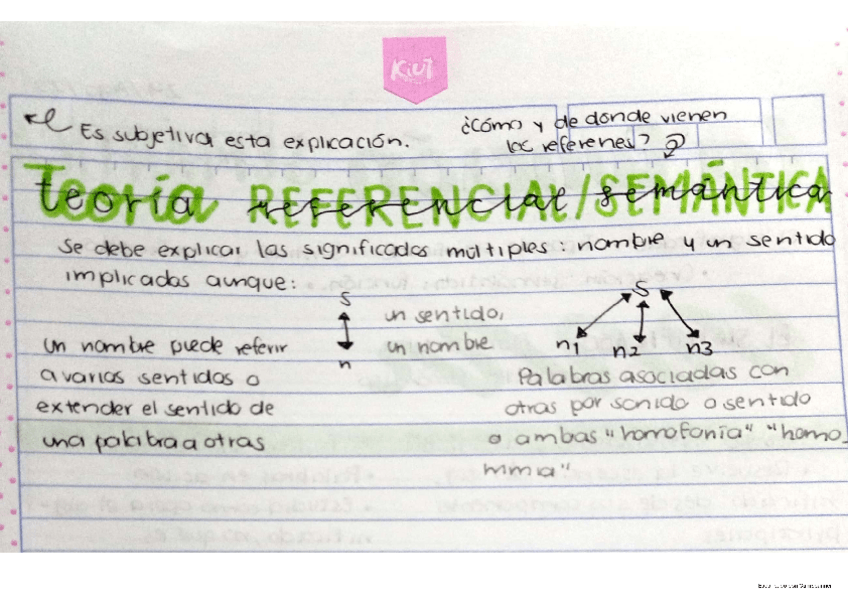 KIUT
Es subjetiva esta explicación.
¿Cómo y de donde vienen
los referenes?
Teoría REFERENCIAL/SEMÁNTICA
se debe explicar los significados múltiples: nombre y un sentido
implicados aunque:
S
n
un sentido,
un nombre
S
n1 n2 n3
un nombre puede referir
a varios sentidos o
extender el sentido de
una palabra a otras
Palabras asociadas con
otras por sonido o sentido
o ambas "homofonía" "homo
nimia"